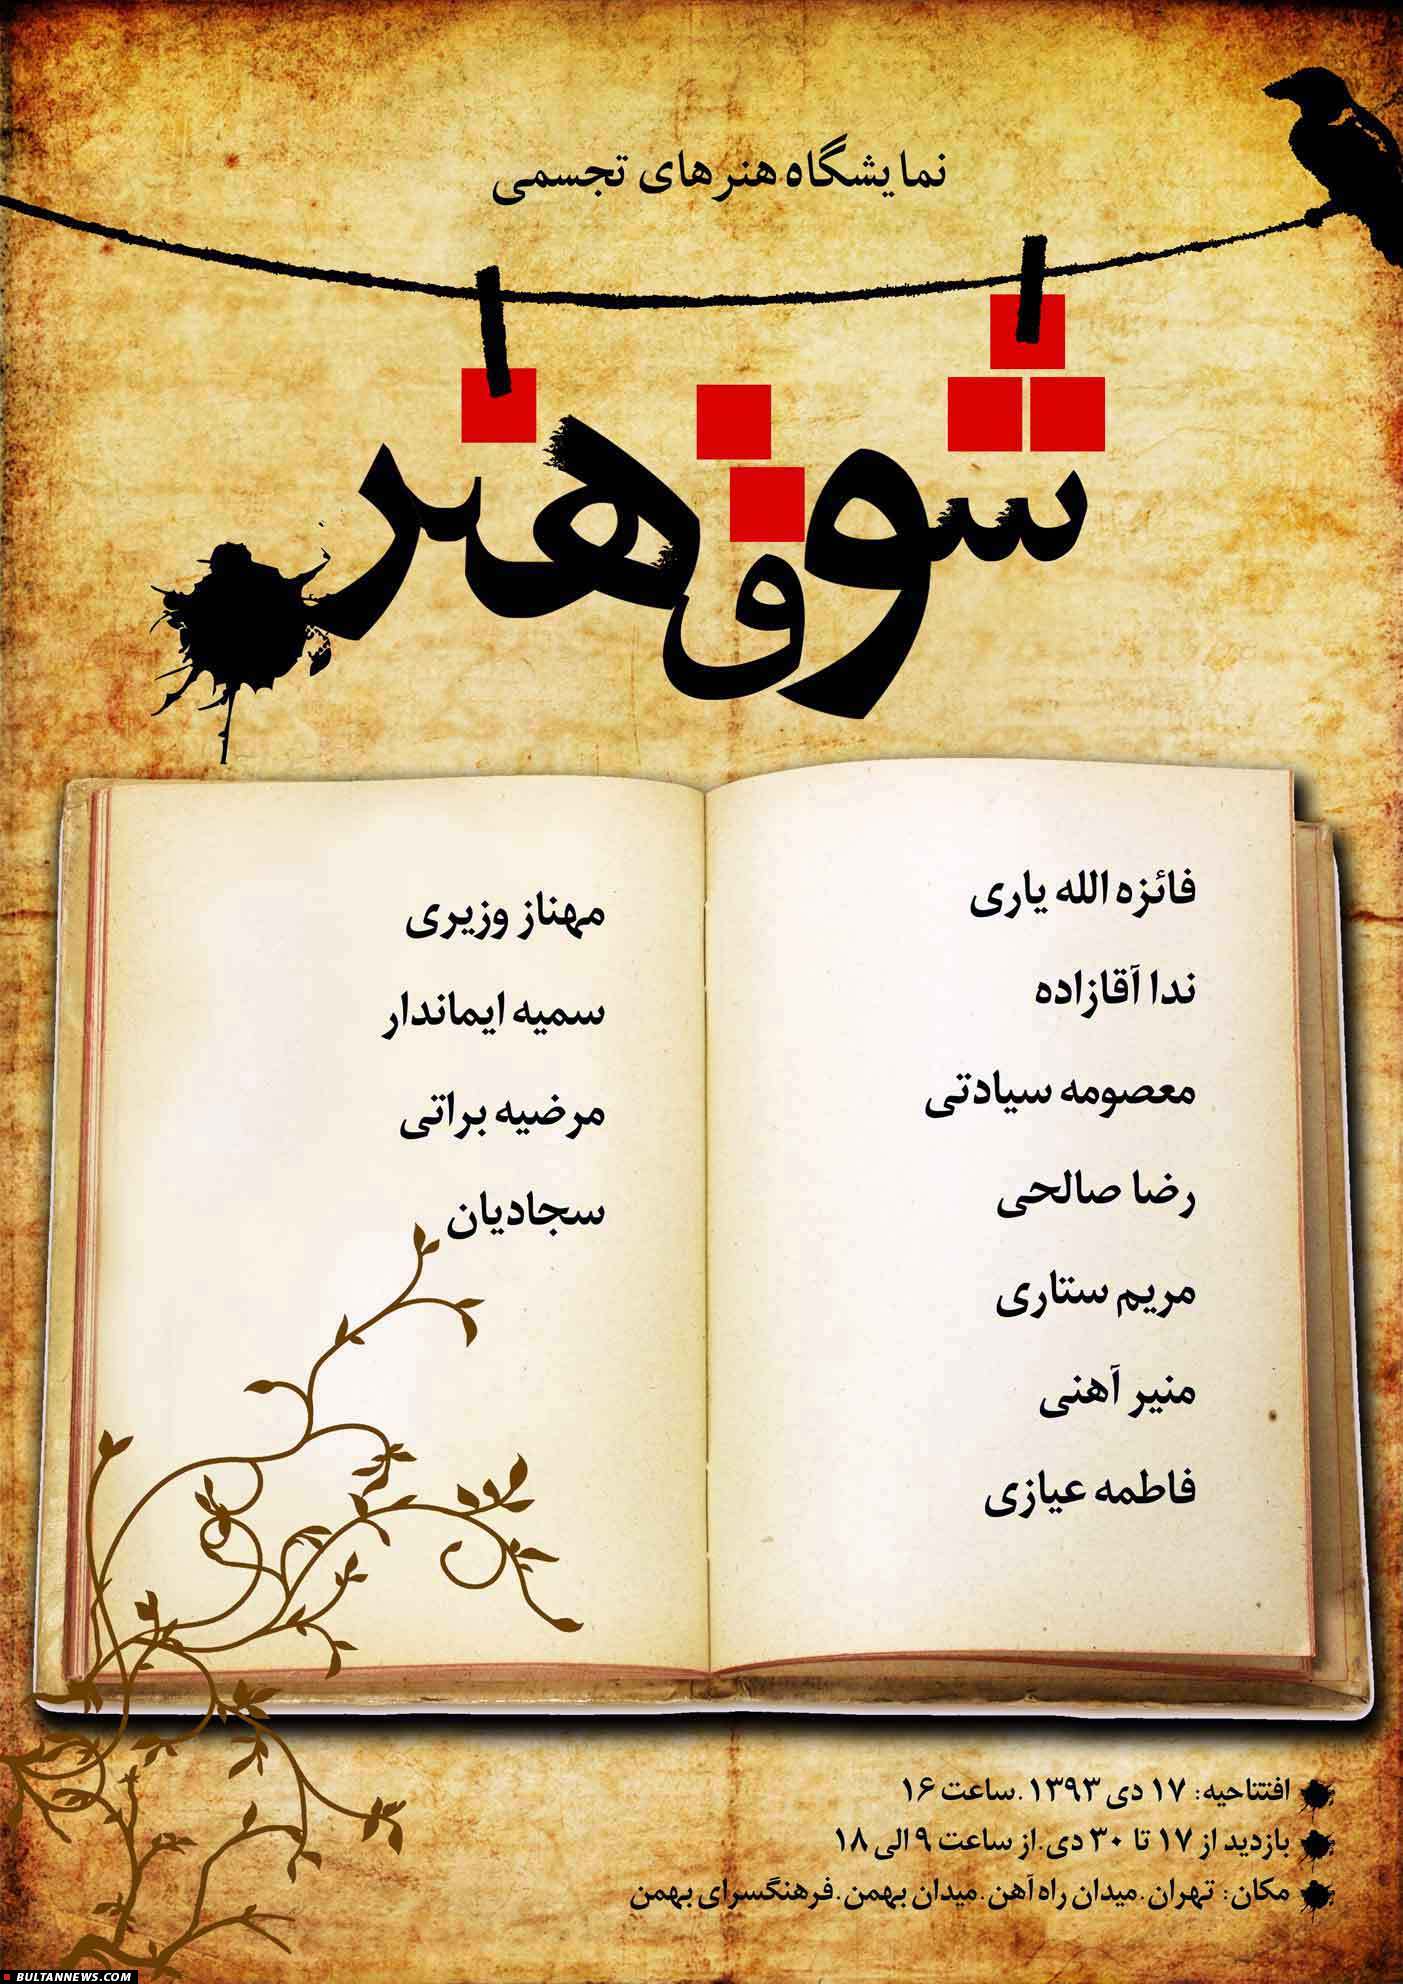 نمایشگاه هنرهای تجسمی
شوق هنر
فائزه الله یاری
ندا آقازاده
معصومه سیادتی
رضا صالحی
مریم ستاری
منیر آهنی
فاطمه عیازی
مهناز وزیری
سمیه ایماندار
مرضیه براتی
سجادیان
افتتاحیه: ۱۷ دی ۱۳۹۳.ساعت ۱۶
بازدید از ۱۷ تا ۳۰ دی.از ساعت ۹ الی ۱۸
مکان: تهران.میدان راه آهن.میدان بهمن.فرهنگسرای بهمن
BULTANNEWS.COM